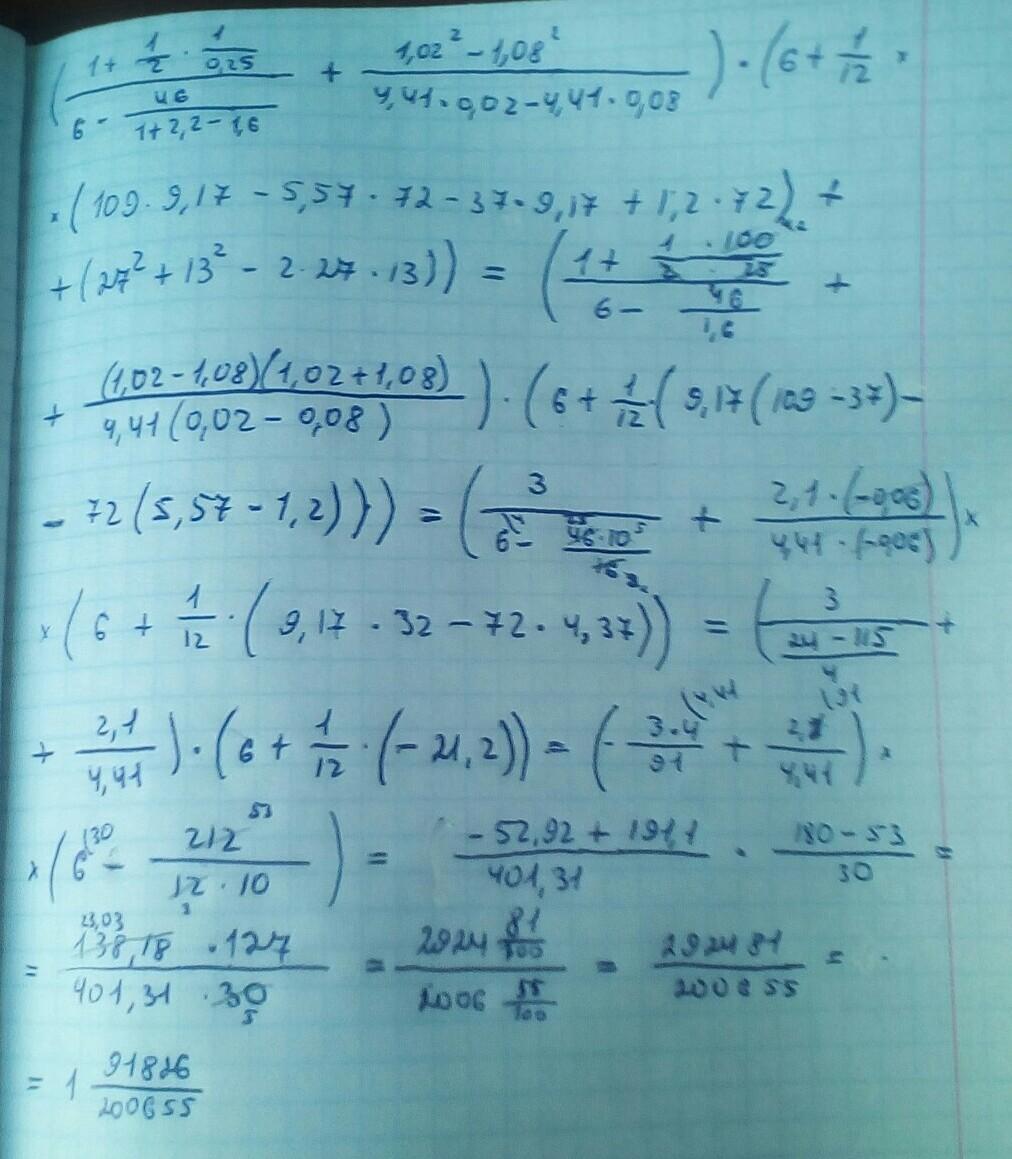 ( (1 + 1/2 · 1/0,25) / (6 - 46/(1+2,2-1,6)) + (1,02² - 1,08²) / (4,41·0,02 - 4,41·0,08) ) · (6 + 1/12 ×
× (109 · 9,17 - 5,57 · 72 - 37 · 9,17 + 1,2 · 72) +
+ (27² + 13² - 2 · 27 · 13)) = ( (1 + (1 · 100)/(2 · 25)) / (6 - 46/1,6) +
+ ((1,02 - 1,08)(1,02 + 1,08)) / (4,41(0,02 - 0,08)) ) · (6 + 1/12 · (9,17(109 - 37) -
- 72(5,57 - 1,2))) = ( 3 / (6 - (46·10)/16) + (2,1 · (-0,06)) / (4,41 · (-0,06)) ) ×
× (6 + 1/12 · (9,17 · 32 - 72 · 4,37)) = ( 3 / ((24 - 115)/4) +
+ 2,1/4,41 ) · (6 + 1/12 · (-21,2)) = (- (3·4)/91 + 2,1/4,41) ×
× (6 - 212/(12 · 10)) = (-52,92 + 191,1)/401,31 · (180 - 53)/30 =
= (138,18 · 127)/(401,31 · 30) = (2924 81/100)/(2006 55/100) = 292481/200655 =
= 1 91826/200655